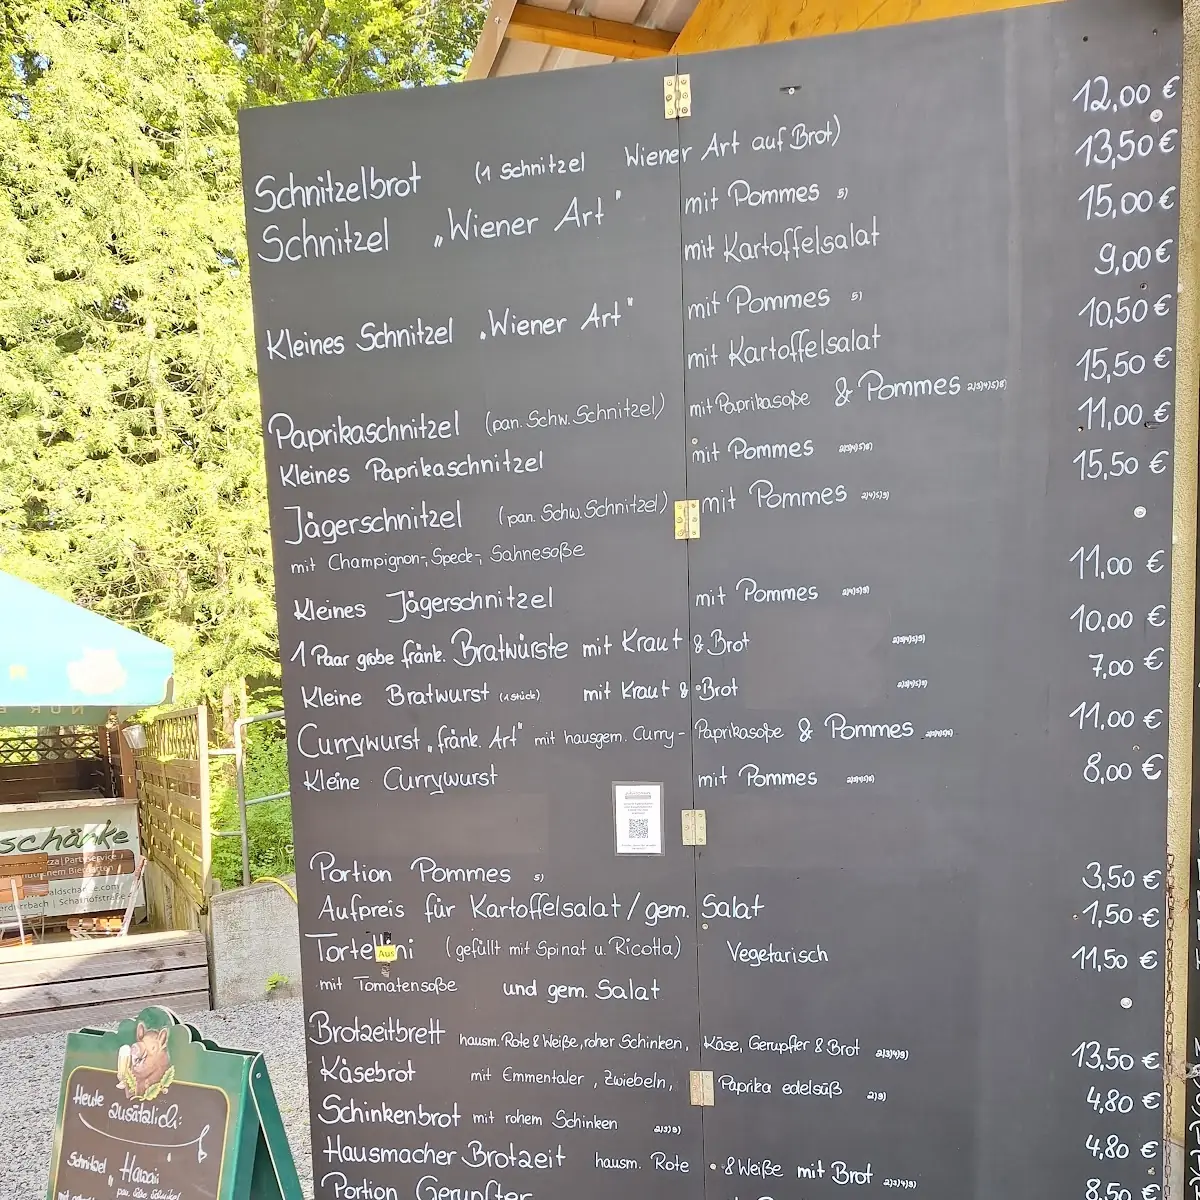 Schnitzelbrot (1 Schnitzel Wiener Art auf Brot) 12,00 €
Schnitzel „Wiener Art" mit Pommes 5) 13,50 €
mit Kartoffelsalat 15,00 €
Kleines Schnitzel „Wiener Art" mit Pommes 5) 9,00 €
mit Kartoffelsalat 10,50 €
Paprikaschnitzel (pan. Schw. Schnitzel) mit Paprikasoße & Pommes 15,50 €
Kleines Paprikaschnitzel mit Pommes 11,00 €
Jägerschnitzel (pan. Schw. Schnitzel) mit Pommes 15,50 €
mit Champignon-, Speck-, Sahnesoße
Kleines Jägerschnitzel mit Pommes 11,00 €
1 Paar grobe fränk. Bratwürste mit Kraut & Brot 10,00 €
Kleine Bratwurst (1 Stück) mit Kraut & Brot 7,00 €
Currywurst „fränk. Art" mit hausgem. Curry- Paprikasoße & Pommes 11,00 €
Kleine Currywurst mit Pommes 8,00 €
Portion Pommes 5) 3,50 €
Aufpreis für Kartoffelsalat / gem. Salat 1,50 €
Tortellini (gefüllt mit Spinat u. Ricotta) Vegetarisch 11,50 €
Aus
mit Tomatensoße und gem. Salat
Brotzeitbrett hausm. Rote & Weiße, roher Schinken, Käse, Gerupfter & Brot 13,50 €
Käsebrot mit Emmentaler, Zwiebeln, Paprika edelsüß 4,80 €
Schinkenbrot mit rohem Schinken 4,80 €
Hausmacher Brotzeit hausm. Rote & Weiße mit Brot 8,50 €
Portion Gerupfter
schänke
Heute
zusätzlich:
Schnitzel „Hawaii